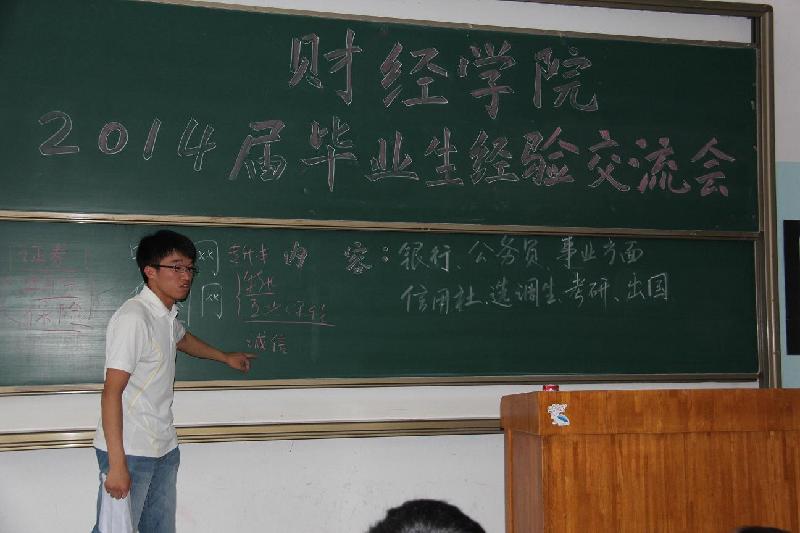 财经学院
2014届毕业生经验交流会
证券
保险
网
网
内 容：银行、公务员、事业方面
信用社、选调生、考研、出国
诚信